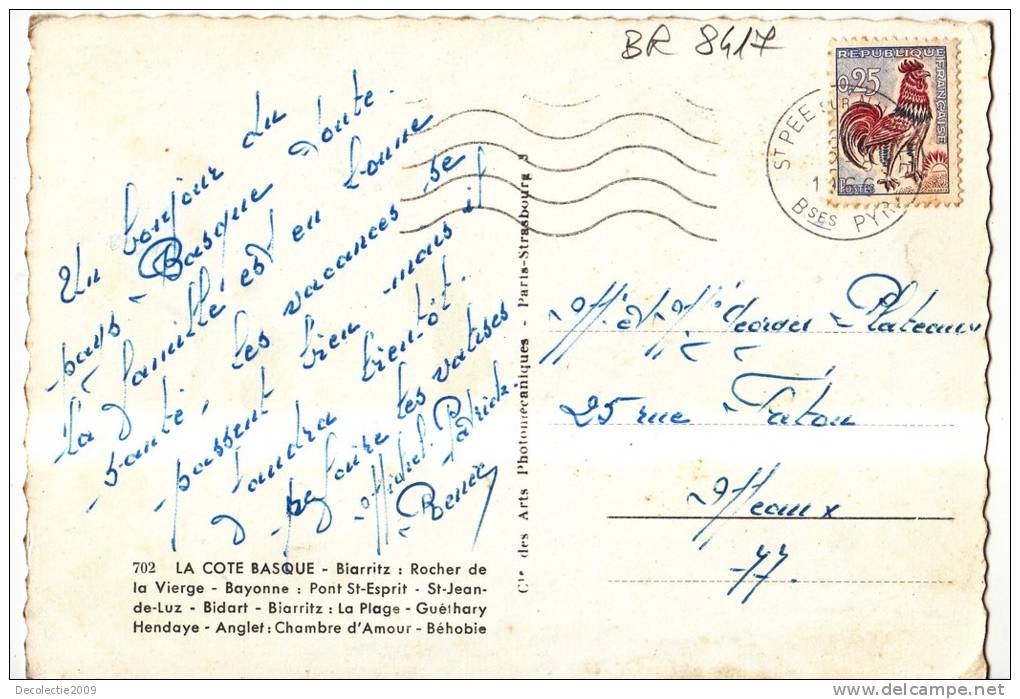 BR 8417
REPUBLIQUE FRANÇAISE
0,25
POSTES
ST PEE SUR
Bses PYR
Un bonjour du
pays Basque Toute
la famille est en bonne
santé, les vacances se
passent bien mais il
faudra bientôt.
refaire les valises
Michel Patrick.
Renée
Cie des Arts Photomécaniques - Paris-Strasbourg 3
M. et Mme Georges Plateaux
25 rue Tatou
Meaux
77.
702 LA COTE BASQUE - Biarritz : Rocher de
la Vierge - Bayonne : Pont St-Esprit - St-Jean-
de-Luz - Bidart - Biarritz : La Plage - Guéthary
Hendaye - Anglet : Chambre d'Amour - Béhobie
Decolectie2009
delcampe.net